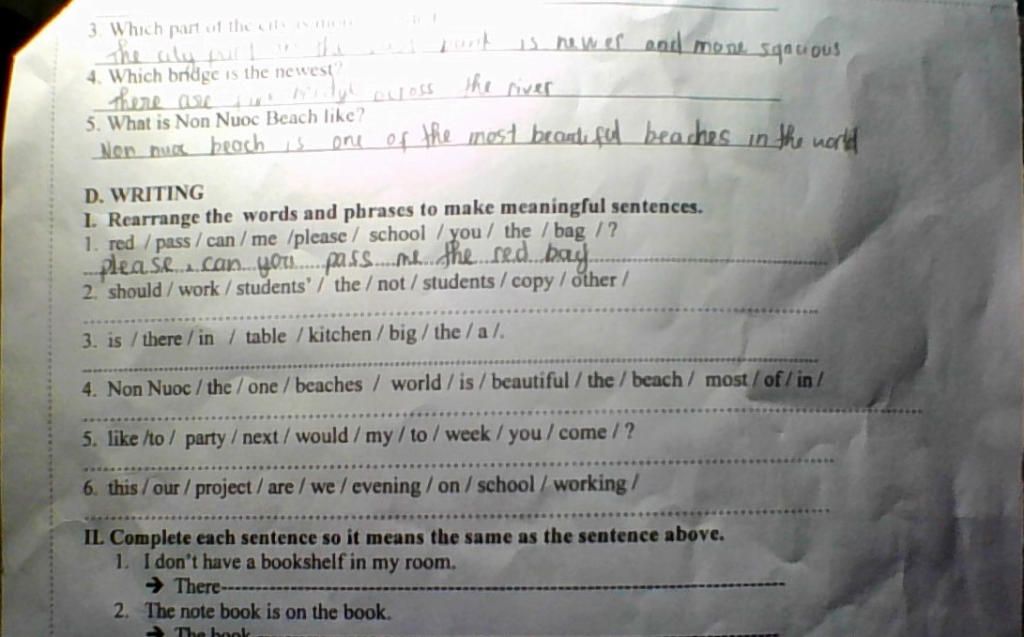 3. Which part of the city is
The city part in the east bank is newer and more sqacious
4. Which bridge is the newest?
There are bridge across the river
5. What is Non Nuoc Beach like?
Non nuoc beach is one of the most beautiful beaches in the world
D. WRITING
I. Rearrange the words and phrases to make meaningful sentences.
1. red / pass / can / me /please / school / you / the / bag / ?
please, can you pass me the red bag
2. should / work / students' / the / not / students / copy / other /
3. is / there / in / table / kitchen / big / the / a /.
4. Non Nuoc / the / one / beaches / world / is / beautiful / the / beach / most / of / in /
5. like /to / party / next / would / my / to / week / you / come / ?
6. this / our / project / are / we / evening / on / school / working /
II. Complete each sentence so it means the same as the sentence above.
1. I don't have a bookshelf in my room.
➔ There
2. The note book is on the book.
➔ The book